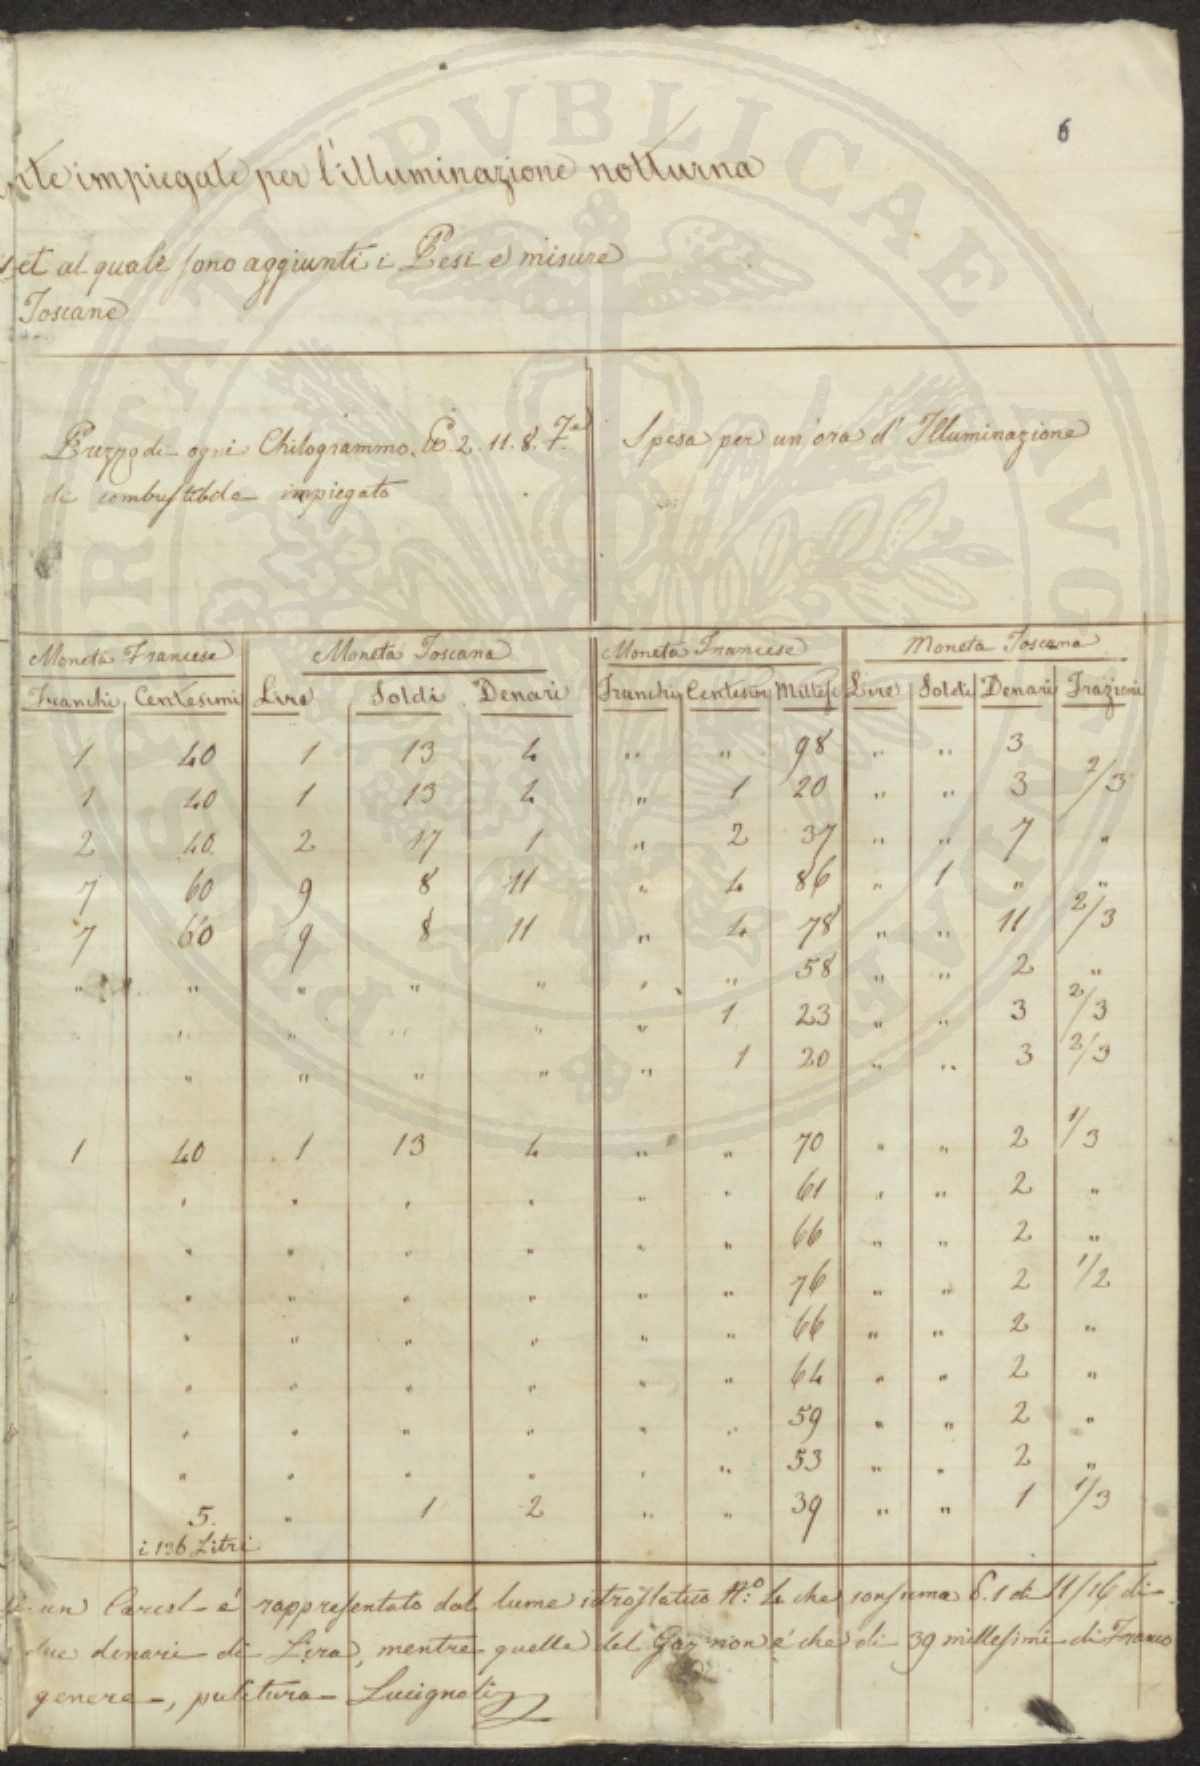 6
nte impiegate per l'illuminazione notturna
et al quale sono aggiunti i Pesi e misure
Toscane
Prezzo di ogni Chilogrammo. 2. 11. 8. Te
di combustibile impiegato
Spesa per un'ora d'Illuminazione
Moneta Francese Moneta Toscana Moneta Francese Moneta Toscana
Franchi Centesimi Lire Soldi Denari Franchi Centesimi Millesi Lire Soldi Denari Frazioni
1 40 1 13 4 " " 98 " " 3
1 40 1 13 4 " 1 20 " " 3 2/3
2 40 2 17 1 " 2 37 " " 7 "
7 60 9 8 11 " 4 86 " 1 " "
7 60 9 8 11 " 4 78 " " 11 2/3
" " " " " " " 58 " " 2 "
" " " " " 1 23 " " 3 2/3
" " " " " 1 20 " " 3 2/3
1 40 1 13 4 " " 70 " " 2 1/3
" " " " " " 61 " " 2 "
" " " " " " 66 " " 2 "
" " " " " " 76 " " 2 1/2
" " " " " " 66 " " 2 "
" " " " " " 64 " " 2 "
" " " " " " 59 " " 2 "
" " " " " " 53 " " 2 "
5. " 1 2 " " 39 " " 1 1/3
i 136 Litri
un Carcel é rappresentato dal lume idrostatico N.º 4 che consuma 6.1 di 11/16 di
due denari di Lira, mentre quello del Gaz non é che di 39 millesimi di Franco
genere, pulitura Lucignoli
PVBLICAE